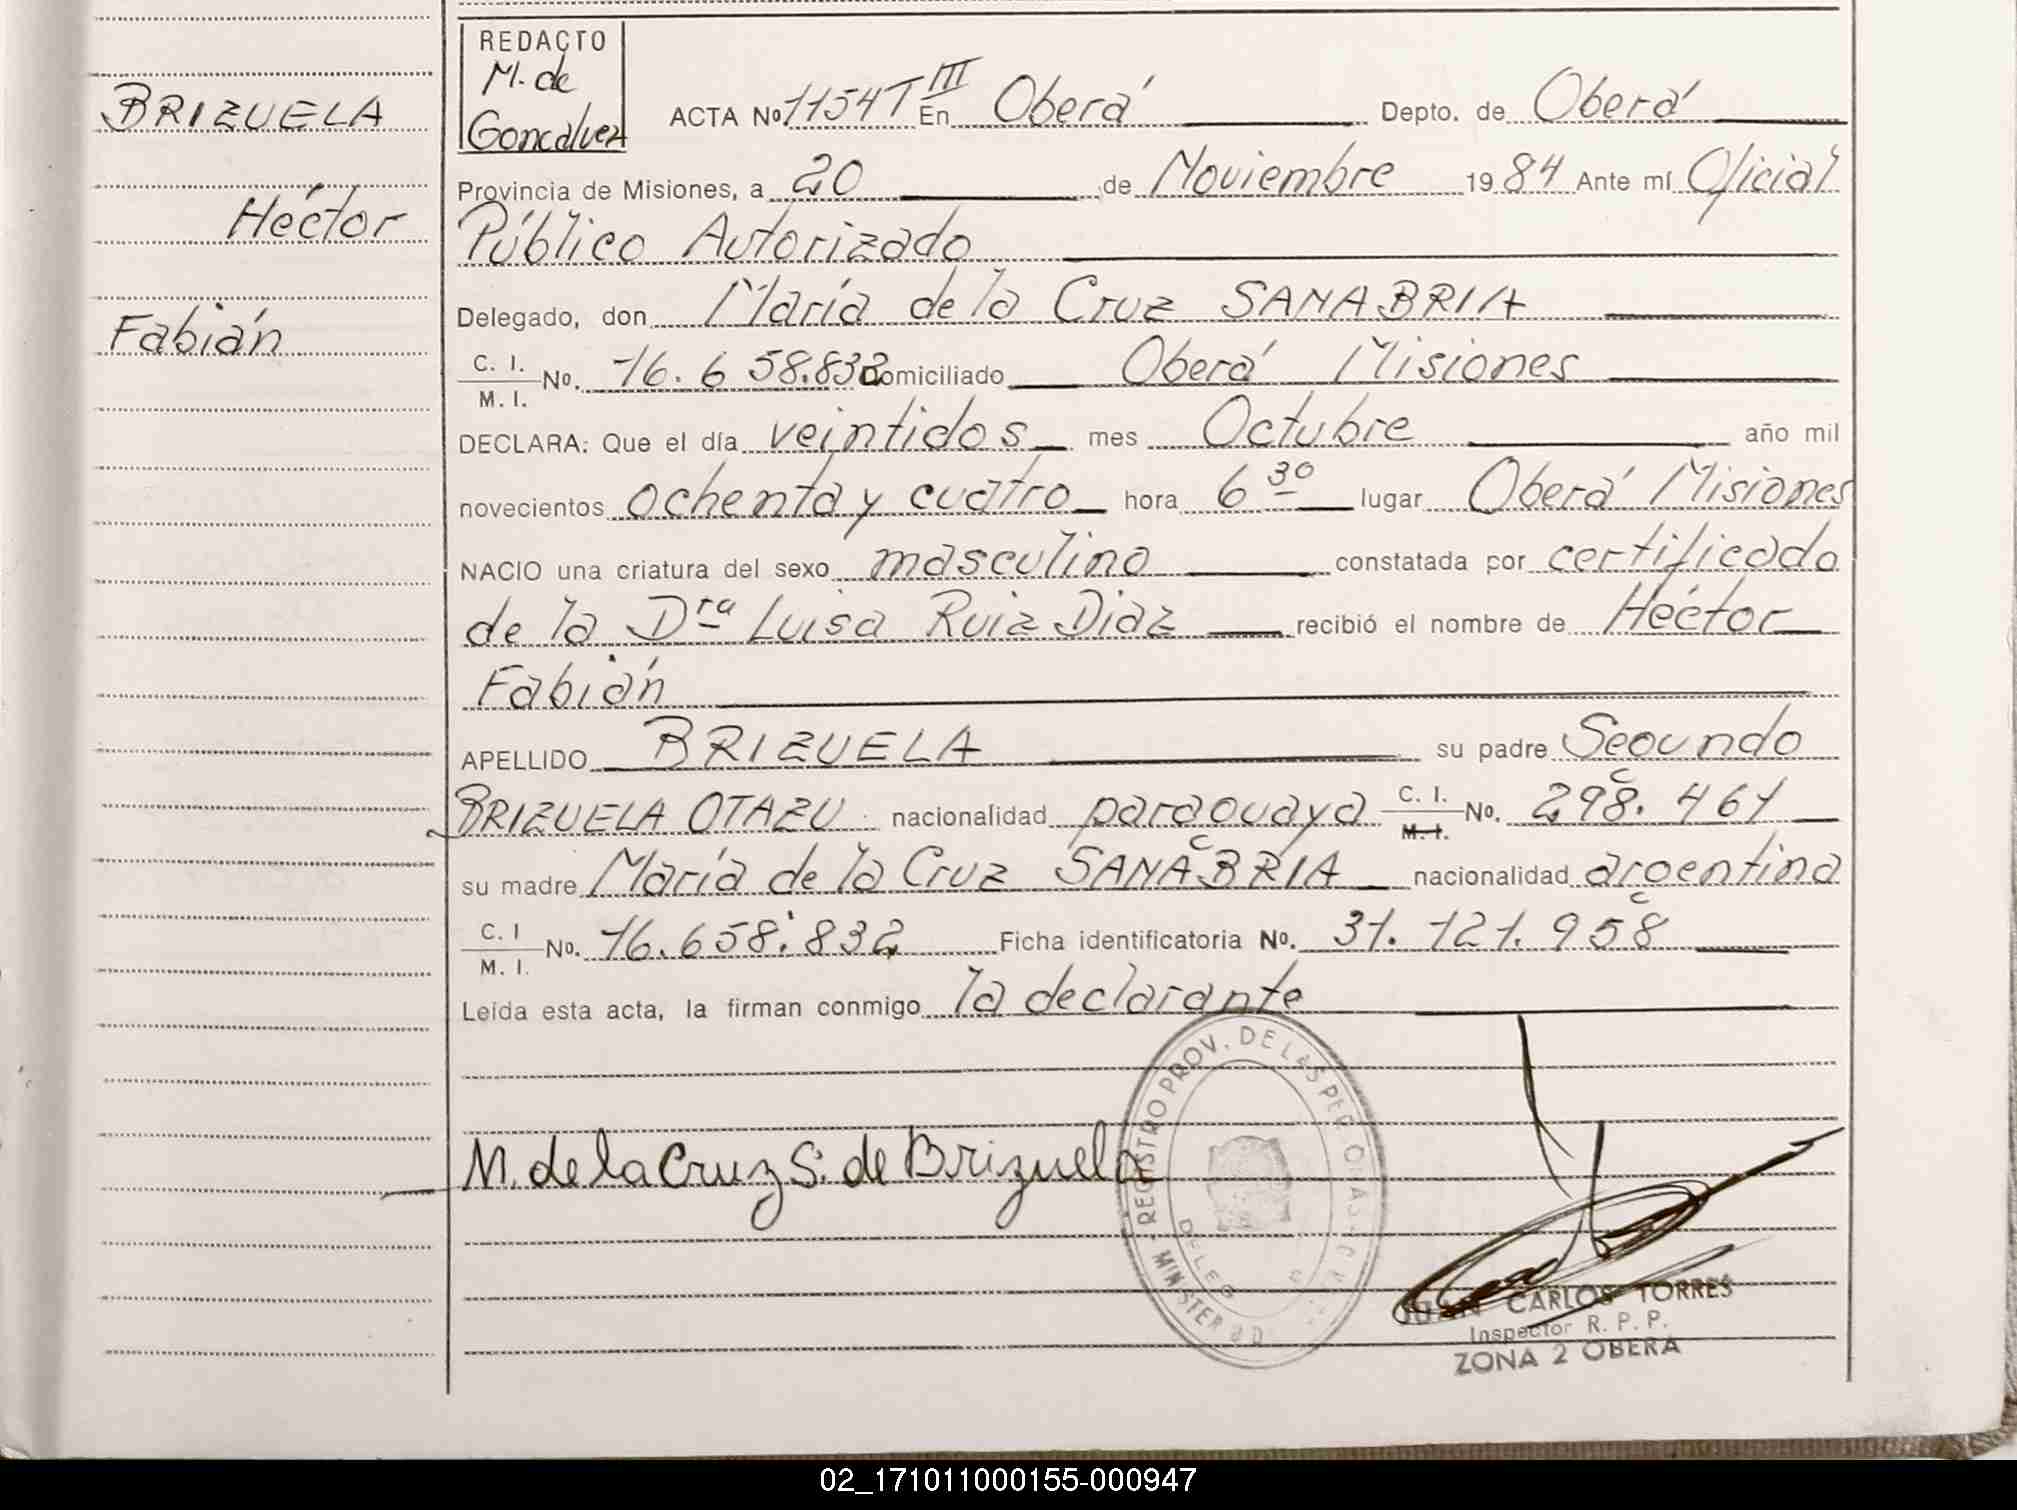 BRIZUELA
Héctor
Fabián
REDACTO
M. de
Goncalvez
ACTA Nº 1154 T III En Oberá Depto. de Oberá
Provincia de Misiones, a 20 de Noviembre 1984 Ante mí Oficial
Público Autorizado
Delegado, don María de la Cruz SANABRIA
C. I. M. I. No. 16.658.832 Domiciliado Oberá Misiones
DECLARA: Que el día veintidos mes Octubre año mil
novecientos ochenta y cuatro hora 6 30 lugar Oberá Misiones
NACIO una criatura del sexo masculino constatada por certificado
de la Dra Luisa Ruiz Diaz recibió el nombre de Héctor
Fabián
APELLIDO BRIZUELA su padre Segundo
BRIZUELA OTAZU nacionalidad paraguaya C. I. M. I. No. 298.461
su madre María de la Cruz SANABRIA nacionalidad argentina
C. I M. I. No. 16.658.832 Ficha identificatoria No. 31.121.958
Leída esta acta, la firman conmigo la declarante
M. de la Cruz S. de Brizuela
REGISTRO PROV. DE LAS PER
MINISTER
DELEG
JUAN CARLOS TORRES
Inspector R. P. P.
ZONA 2 OBERA
02_171011000155-000947